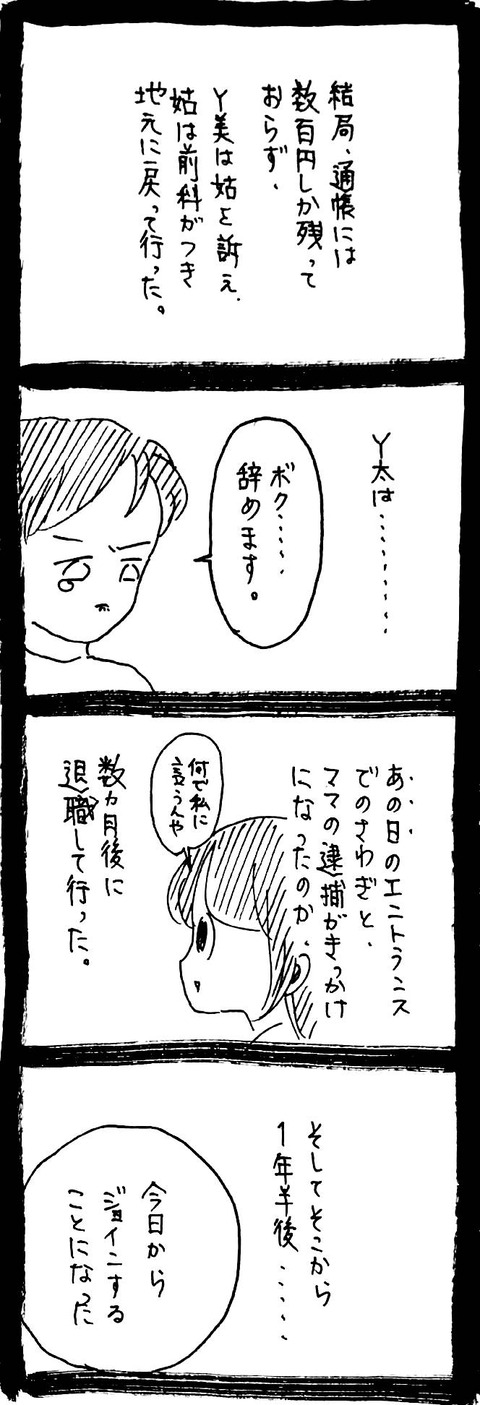 結局、通帳には
数百円しか残って
おらず、
Y美は姑を訴え、
姑は前科がつき
地元に戻って行った。
Y太は………
ボク……
辞めます。
あの日のエントランス
でのさわぎと、
ママの逮捕がきっかけ
になったのか、
何で私に
言うんや
数ヵ月後に
退職して行った。
そしてそこから
1年半後……
今日から
ジョインする
ことになった